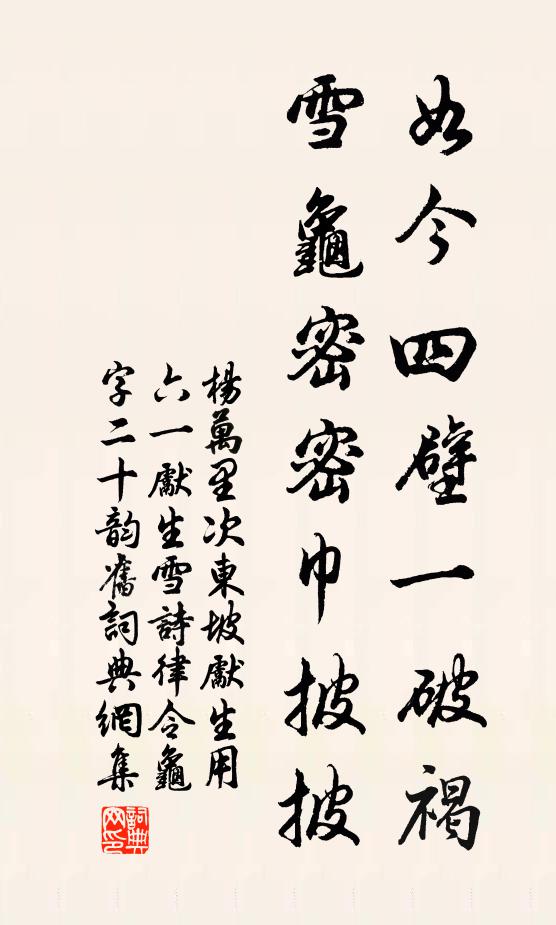 如今四壁一破褐
雪龜密密巾披披
楊萬里次東坡獻生用
六一獻生雪詩律令龜
字二十韵舊詞典網集
詞典
网印